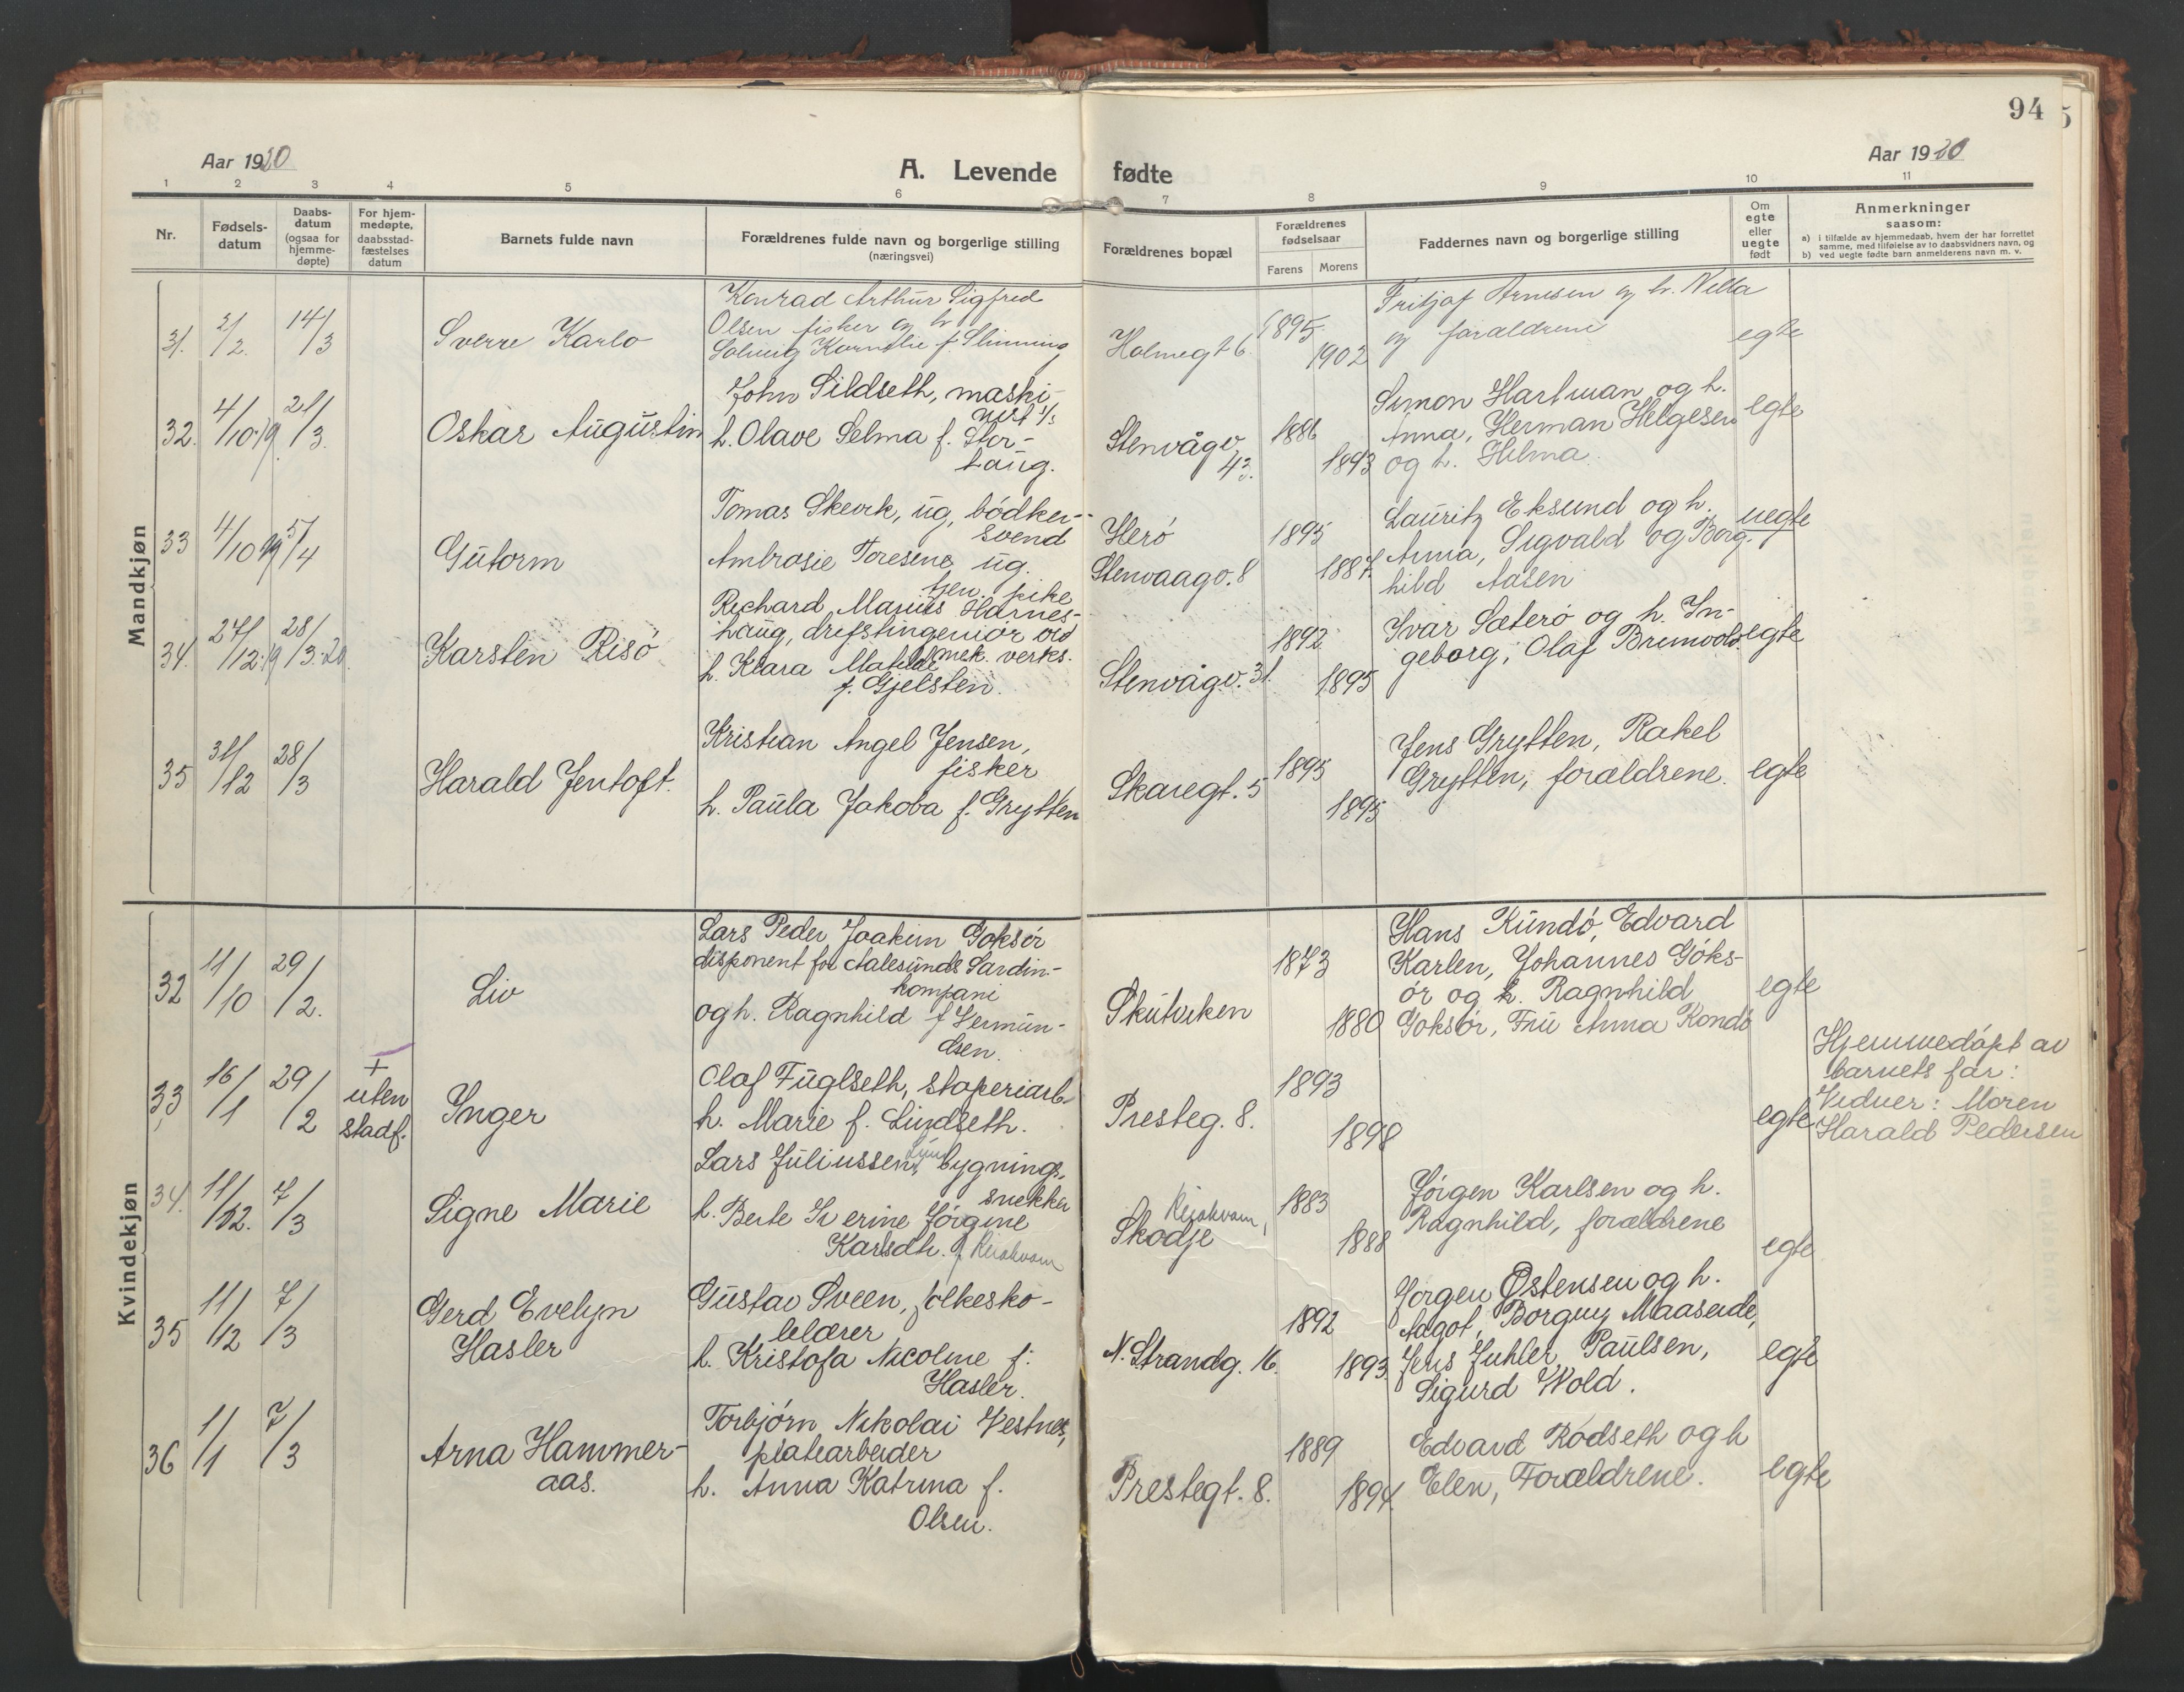 94
Aar 1920
A. Levende fødte
Aar 1920
1 2 3 4 5 6 7 8 9 10 11
Nr.
Fødsels-
datum
Daabs-
datum
(ogsaa for
hjemme-
døpte)
For hjem-
medøpte,
daabsstad-
fæstelses
datum
Barnets fulde navn
Forældrenes fulde navn og borgerlige stilling
(næringsvei)
Forældrenes bopæl
Forældrenes
fødselsaar
Farens Morens
Faddernes navn og borgerlige stilling
Om
egte
eller
uegte
født
Anmerkninger
saasom:
a) i tilfælde av hjemmedaab, hvem der har forrettet
samme, med tilføielse av to daabsvidners navn, og
b) ved uegte fødte barn anmelderens navn m. v.
Mandkjøn
31. 2/2. 14/3
Sverre Karlo
Konrad Arthur Sigfred
Olsen fisker og h.
Solveig Kornelie f. Slinning
Holmegt 6.
1895
1902
Fritjof Arnesen og h. Nella
og forældrene
egte
32. 4/10.19. 21/3.
Oskar Augustin
John Sildseth, maski-
nist 1/s
h. Olave Selma f. Stor-
haug.
Stenvågv.
43.
1886
1893
Simon Hartman og h.
Anna, Herman Helgesen
og h. Hilma.
egte
33 4/10 19 5/4
Gutorm
Tomas Skevik, ug, bödker-
svend
Ambrosie Toresene, ug.
tjen. pike
Herö
Stenvaagv. 8
1895
1887.
Lauritz Eksund og h.
Anna, Sigvald og Borg-
hild Aasen
uegte
34. 27/12.19 28/3.20
Karsten Risö
Richard Marius Harnes-
haug, drifstingeniør ved
mek. verks.
h. Klara Matilde
f. Gjelsten.
Stenvågv. 31.
1892
1895
Ivar Sæterö og h. In-
geborg, Olaf Brunvold.
egte
35 31/12 28/3
Harald Jentoft.
Kristian Angel Jensen,
fisker
h. Paula Jakoba f. Grytten
Skaregt. 5
1895
1895
Jens Grytten, Rakel
Grytten, forældrene.
egte
Kvindekjøn
32 11/10 29/2.
Liv
Lars Peder Joakim Goksör
disponent for Aalesunds Sardin-
kompani
og h. Ragnhild f. Vermun-
dsen.
Skutviken
1873
1880
Hans Rundö, Edvard
Karlen, Johannes Göks-
ör og h. Ragnhild
Goksör, Fru Anna Rondö
egte
33 16/1 29/2
+
uten
stadf.
Inger
Olaf Fuglseth, støperiarb.
h. Marie f. Lindseth.
Presteg. 8.
1893
1898
egte
Hjemmedøpt av
barnets far:
Vidner: Moren
Harald Pedersen
34. 11/12. 7/3
Signe Marie
Lars Juliussen, bygnings-
snekker
h. Berte Severine Jørgine
Karlsdh.
Skodje
1883
1888
Jörgen Karlsen og h.
Ragnhild, forældrene
egte
35 11/12 7/3
Gerd Evelyn
Hasler
Gustav Sveen, folkesko-
lelærer
h. Kristofa Nicoline f.
Hasler.
N. Strandg. 16.
1892
1893
Jorgen Østensen og h.
Aagot, Borguy Maaseide,
Jens Juhler Paulsen,
Sigurd Wold.
egte
36 1/1 7/3
Arna Hammer-
aas.
Torbjörn Nikolai Vestnes,
platearbeider
h. Anna Katrina f.
Olsen.
Prestegt. 8.
1889
1894.
Edvard Rödseth og h
Elen, Forældrene.
egte